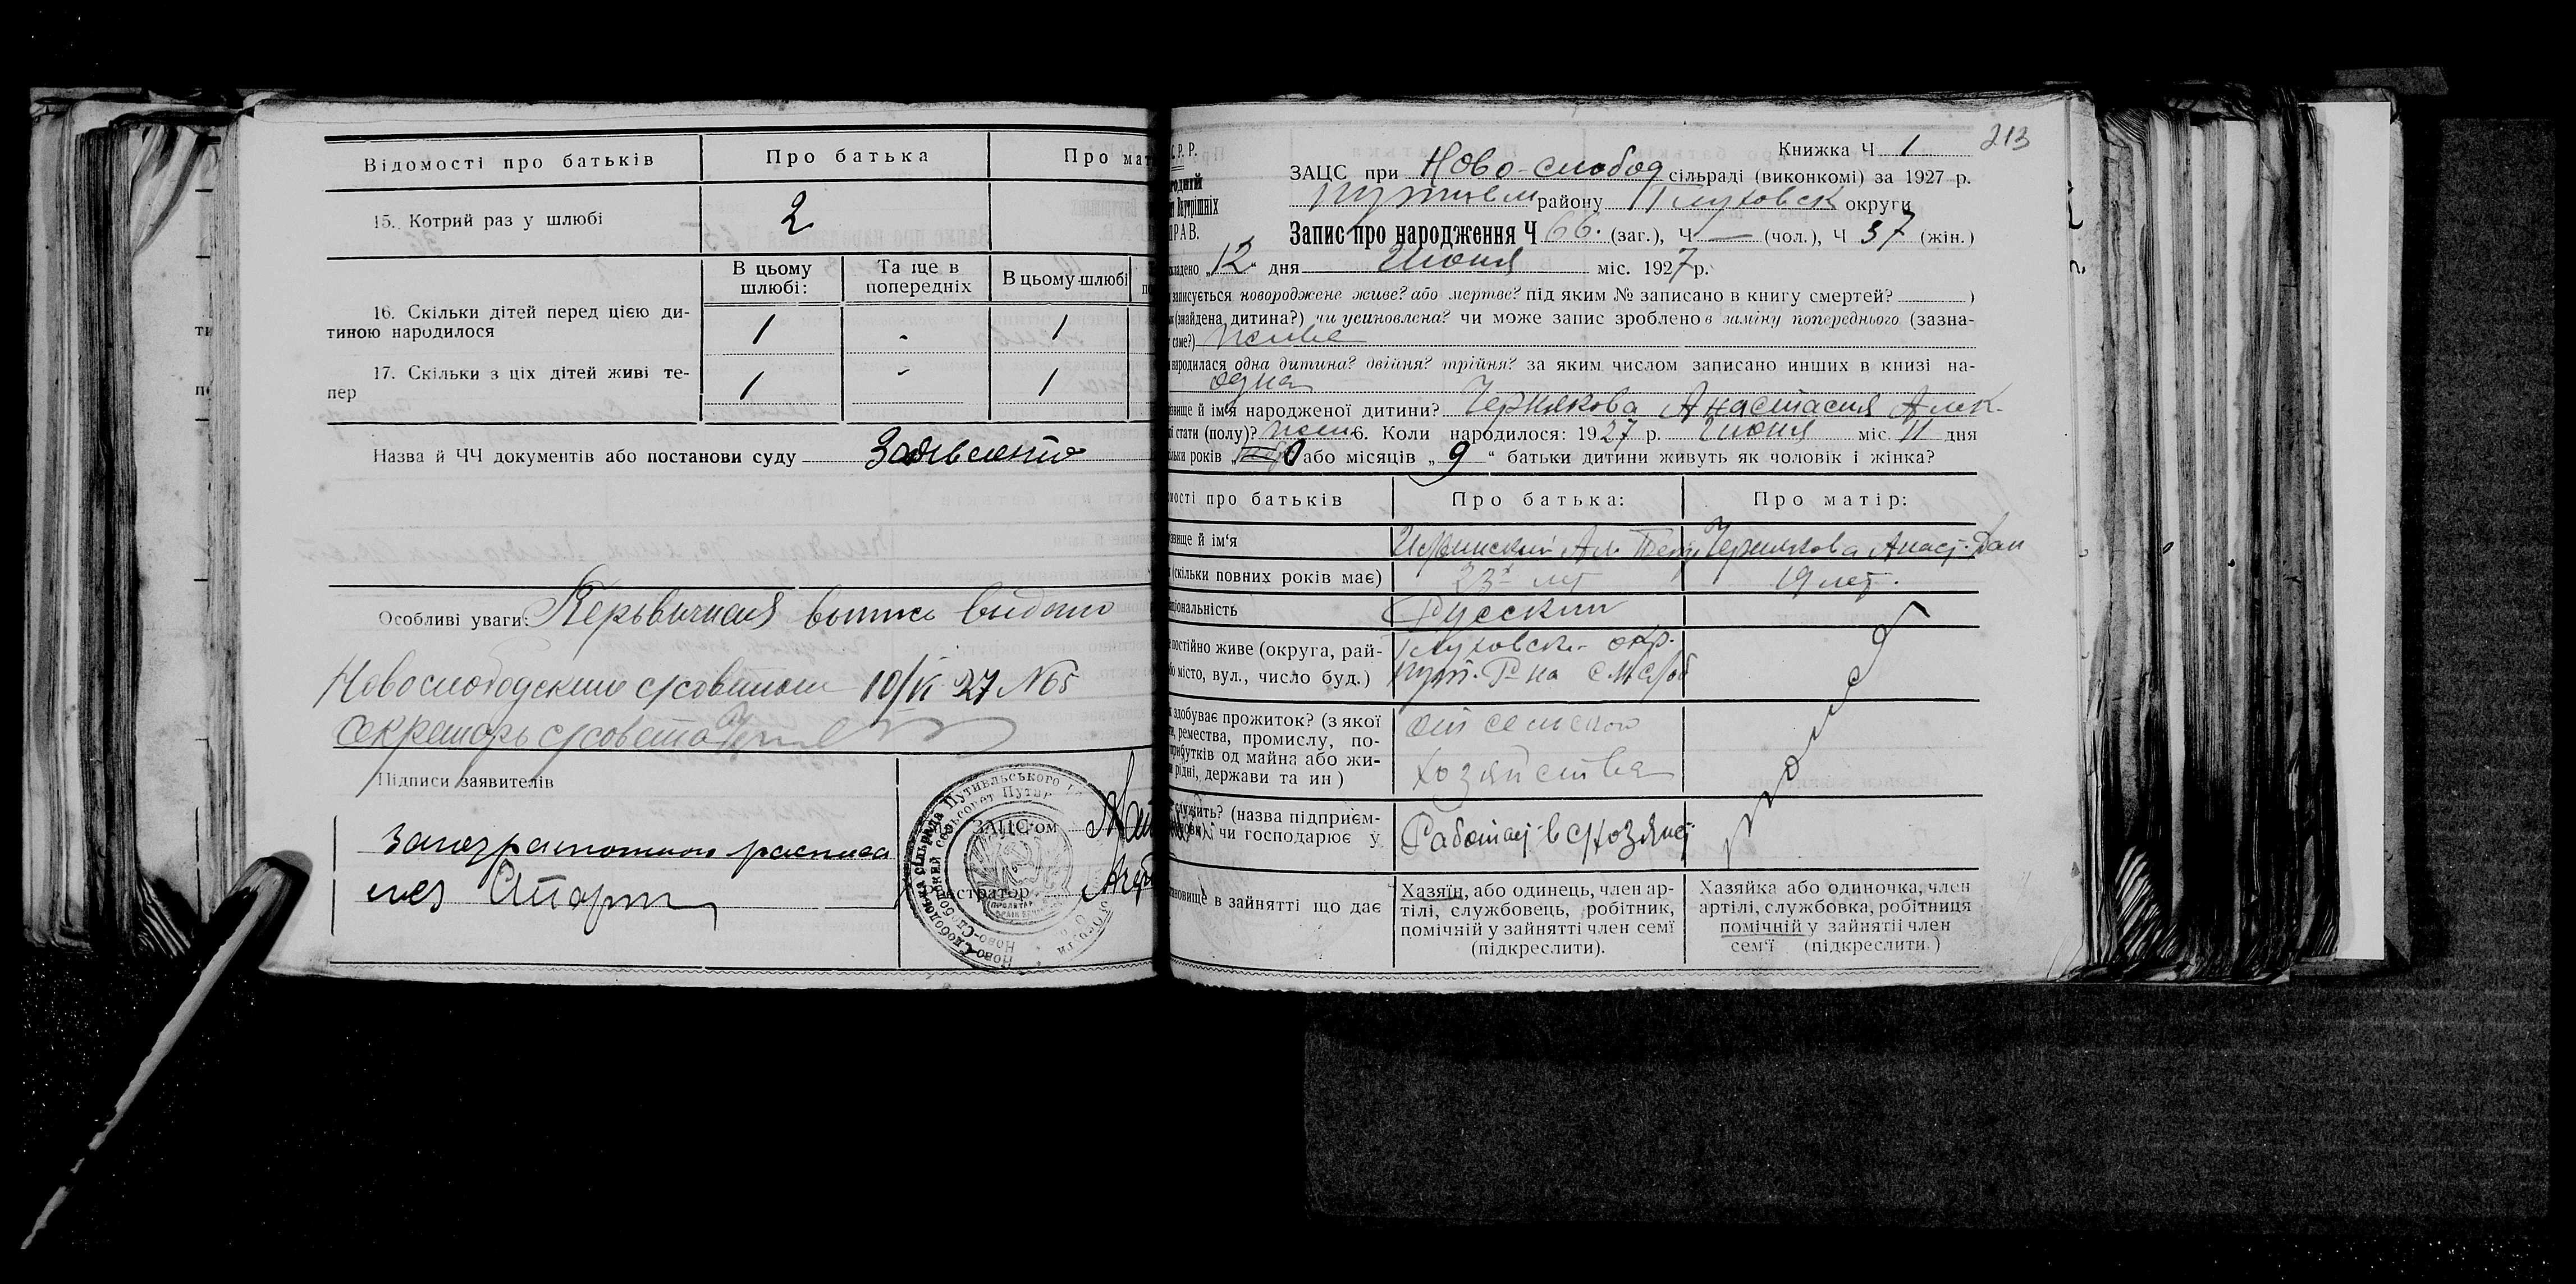 Відомості про батьків
Про батька
Про мат
15. Котрий раз у шлюбі
2
В цьому шлюбі:
Та ще в попередніх
В цьому шлюбі
16. Скільки дітей перед цією ди-
тиною народилося
1
-
1
17. Скільки з ціх дітей живі те-
пер
1
-
1
Назва й ЧЧ документів або постанови суду
Особливі уваги: Первичная выпись выдана
Новослободским с/советом 10/VI 27 №65
секретарь с/совета
Підписи заявителів
За неграмотного расписа
лся
ЗАЦС'ом
Реєстратор
213
С.Р.Р.
Книжка Ч 1
ЗАЦС при Ново-слобод сільраді (виконкомі) за 1927 р.
Внутрішніх
Путивл району Глуховск округи
ПРАВ.
Запис про народження Ч 66. (заг.), Ч — (чол.), Ч 37 (жін.)
кладено „12“ дня Июня міс. 1927 р.
записується новороджене живе? або мертве? під яким № записано в книгу смертей? )
(знайдена дитина?) чи усиновлена? чи може запис зроблено в заміну попереднього (зазна-
саме?) живе
народилася одна дитина? двійня? трійня? за яким числом записано инших в книзі на-
одна
звище й ім'я народженої дитини? Чернякова Анастасия Алек.
стати (полу)? жен 6. Коли народилося: 1927 р. Июня міс. 11 дня
льки років „ 0 або місяців „ 9 “ батьки дитини живуть як чоловік і жінка?
мості про батьків
Про батька:
Про матір:
звище й ім'я
Чернякова Анаст. Дан
(скільки повних років має)
23 лет
19 лет.
ціональність
Русский
постійно живе (округа, рай-
бо місто, вул., число буд.)
Глуховск. окр.
Пут. Р-на с. Н Слоб
здобуває прожиток? (з якої
ремества, промислу, по-
прибутків од майна або жи-
рідні, держави та ин)
от сельского
хозяйства
служить? (назва підприєм-
чи господарює у
Работает в с/хозяйст
тановище в зайнятті що дає
Хазяїн, або одинець, член ар-
тілі, службовець, робітник,
помічній у зайнятті член семї
(підкреслити).
Хазяйка або одиночка, член
артілі, службовка, робітниця
помічній у зайнятії член
сем'ї (підкреслити.)